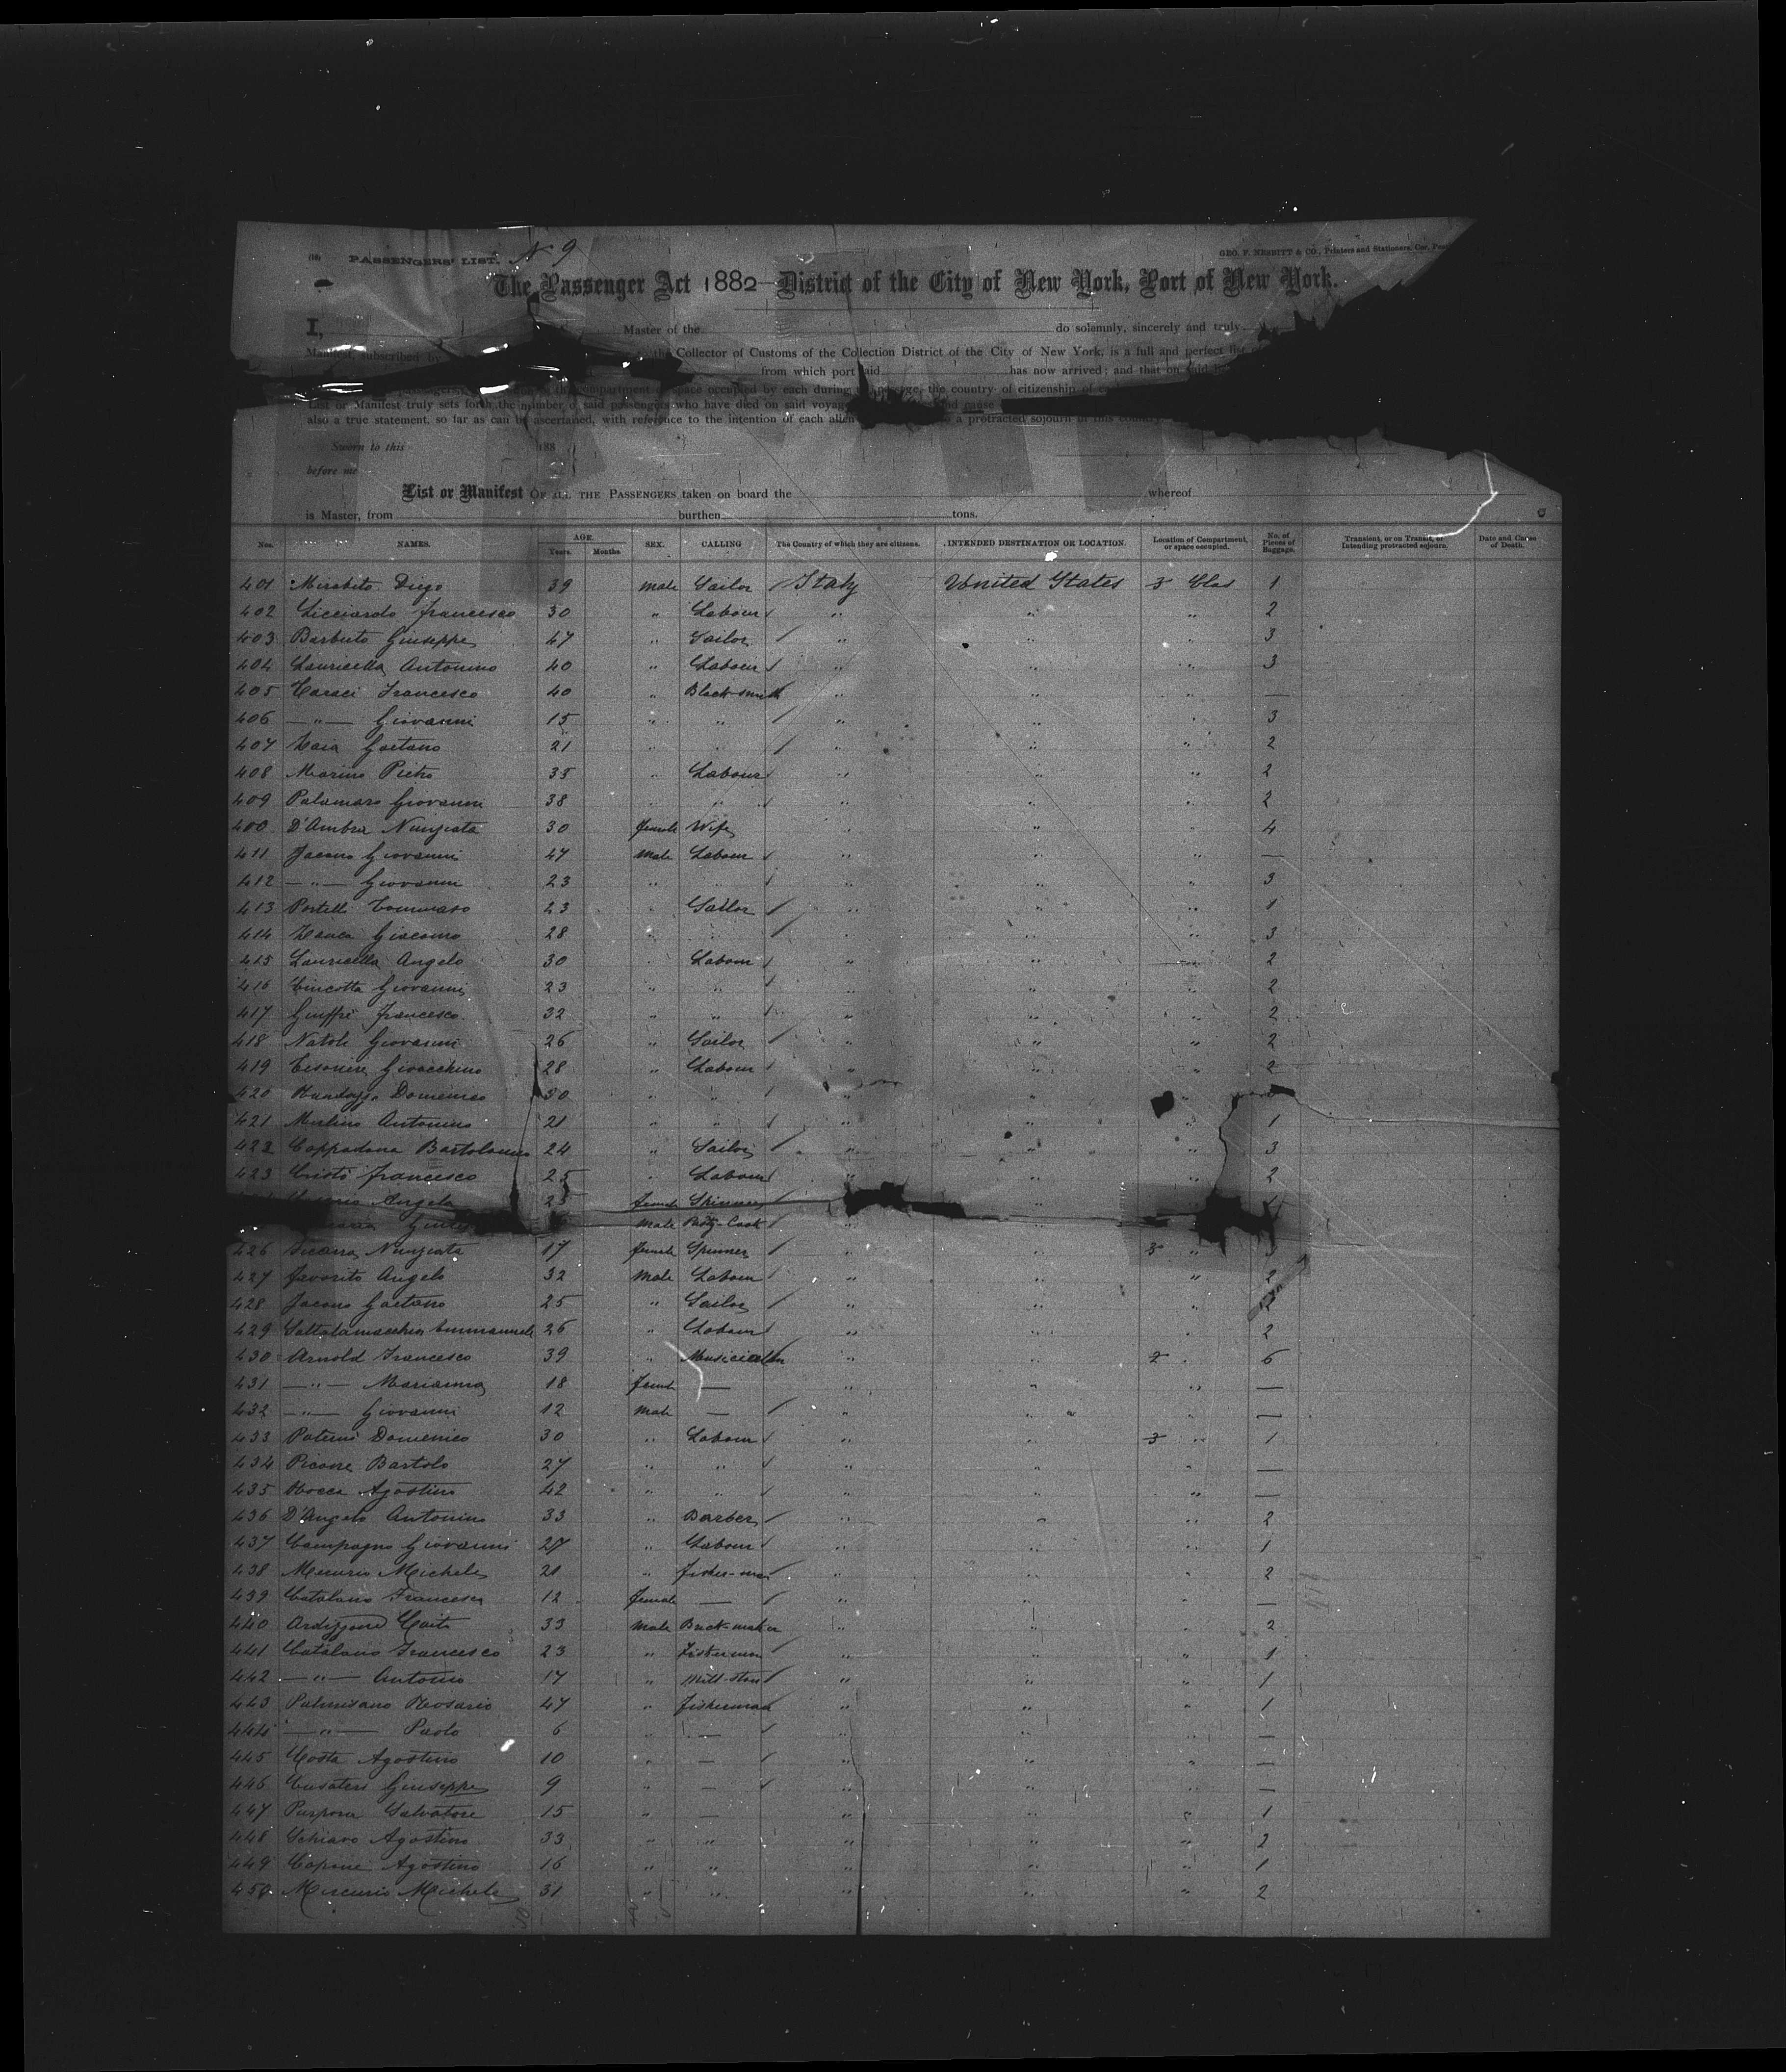 PASSENGERS' LIST. N 9
GEO. F. NESBITT & CO., Printers and Stationers, Cor. Pear
The Passenger Act 1882 District of the City of New York, Port of New York.
I, Master of the do solemnly, sincerely and truly
Manifest, subscribed by the Collector of Customs of the Collection District of the City of New York, is a full and perfect list
from which port said has now arrived; and that on said
compartment space occupied by each during passage, the country of citizenship of
List or Manifest truly sets forth the number of said passengers who have died on said voyage and cause
also a true statement, so far as can be ascertained, with reference to the intention of each alien a protracted sojourn in this country
Sworn to this 188
before me
List or Manifest OF ALL THE PASSENGERS taken on board the whereof
is Master, from burthen tons.
Nos. NAMES. AGE. Years. Months. SEX. CALLING The Country of which they are citizens. INTENDED DESTINATION OR LOCATION. Location of Compartment, or space occupied. No. of Pieces of Baggage. Transient, or on Transit, or Intending protracted sojourn. Date and Cause of Death.
401 Mirabito Diego 39 male Sailor / Italy United States 3 Clas 1
402 Licciardo Francesco 30 " Labour / " " " 2
403 Barbuto Giuseppe 47 " Sailor / " " " 3
404 Lauricella Antonino 40 " Labour / " " " 3
405 Caraci Francesco 40 " Black-smith " " " —
406 —"— Giovanni 15 " " / " " " 3
407 Gaetano 21 " " / " " " 2
408 Marino Pietro 35 " Labour / " " " 2
409 Palamara Giovanni 38 " " / " " " 2
400 D'Ambra Nunziata 30 female Wife " " " 4
411 Jacono Giovanni 47 male Labour / " " " —
412 —"— Giovanni 23 " " / " " " 3
413 Portelli Tommaso 23 " Sailor / " " " 1
414 Giacomo 28 " " / " " " 3
415 Lauricella Angelo 30 " Labour / " " " 2
416 Cincotta Giovanni 23 " " / " " " 2
417 Giuffré Francesco 32 " " / " " " 2
418 Natoli Giovanni 26 " Sailor / " " " 2
419 Giovacchino 28 " Labour / " " " 2
420 Domenico 30 " " / " " "
421 Merlino Antonino 21 " " / " " " 1
422 Cappadona Bartolomeo 24 " Sailor / " " " 3
423 Francesco 25 " Labour / " " " 2
Angela 25 female Spinner / "
male / "
426 Nunziata 17 female Spinner / " " 3 " 3
427 Favorito Angelo 32 male Labour / " " " 2
428 Jacono Gaetano 25 " Sailor / " " " 2
429 Saltalamacchia Emmanuele 26 " Labour / " " " 2
430 Arnold Francesco 39 " Musician " " 2 " 6
431 —"— Marianna 18 female — " " " —
432 —"— Giovanni 12 male — / " " " —
433 Paterni Domenico 30 " Labour / " " 3 " 1
434 Picone Bartolo 27 " " / " " " —
435 Rocca Agostino 42 " " / " " " —
436 D'Angelo Antonino 33 " Barber / " " " 2
437 Campagno Giovanni 27 " Labour / " " " 1
438 Mercurio Michele 21 " Fisher-man / " " " 2
439 Catalano Francesca 12 female — / " " " —
440 Ardizzone 33 male Brick-maker " " " 2
441 Catalano Francesco 23 " Fisherman " " " 1
442 —"— Antonio 17 " / " " " 1
443 Palmisano Rosario 47 " Fisherman " " " 1
444 —"— Paolo 6 " — / " " " —
445 Costa Agostino 10 " — / " " " —
446 Giuseppe 9 " — / " " " —
447 Purpora Salvatore 15 " — " " " 1
448 Schiavo Agostino 33 " " " " " 2
449 Capone Agostino 16 " " " " " 1
450 Mercurio Michele 31 " " " " " 2